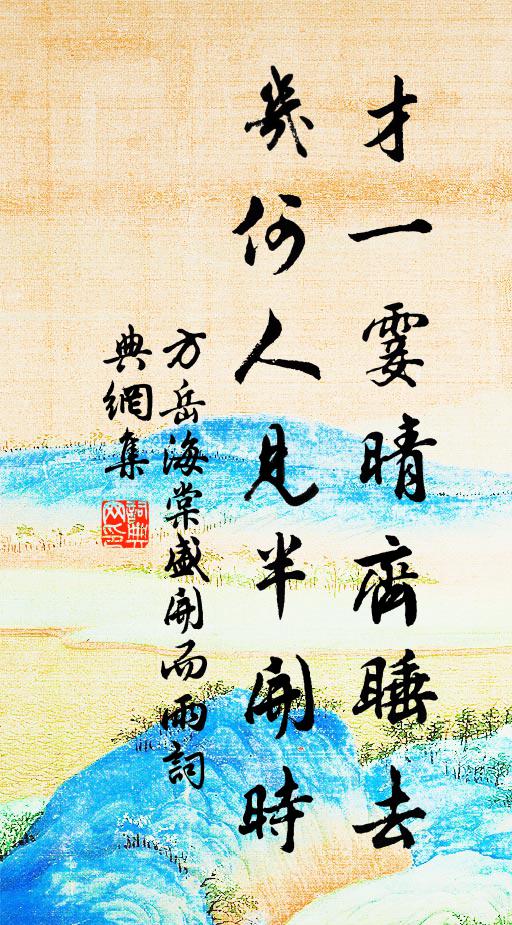 才一霎晴齊睡去
幾何人見半開時
方岳海棠盛開而雨詞
典網集
詞典網印